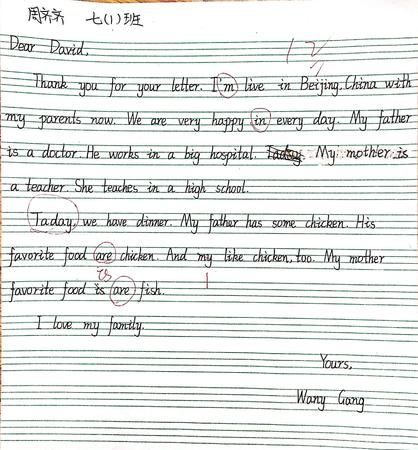 周乔乔 七(1)班
Dear David,
12
Thank you for your letter. I'm live in Beijing, China with
my parents now. We are very happy in every day. My father
is a doctor. He works in a big hospital. Taday My mother is
a teacher. She teaches in a high school.
Taday, we have dinner. My father has some chicken. His
favorite food are chicken. And my like chicken, too. My mother
is I
favorite food is are fish.
I love my family.
Yours,
Wany Gang